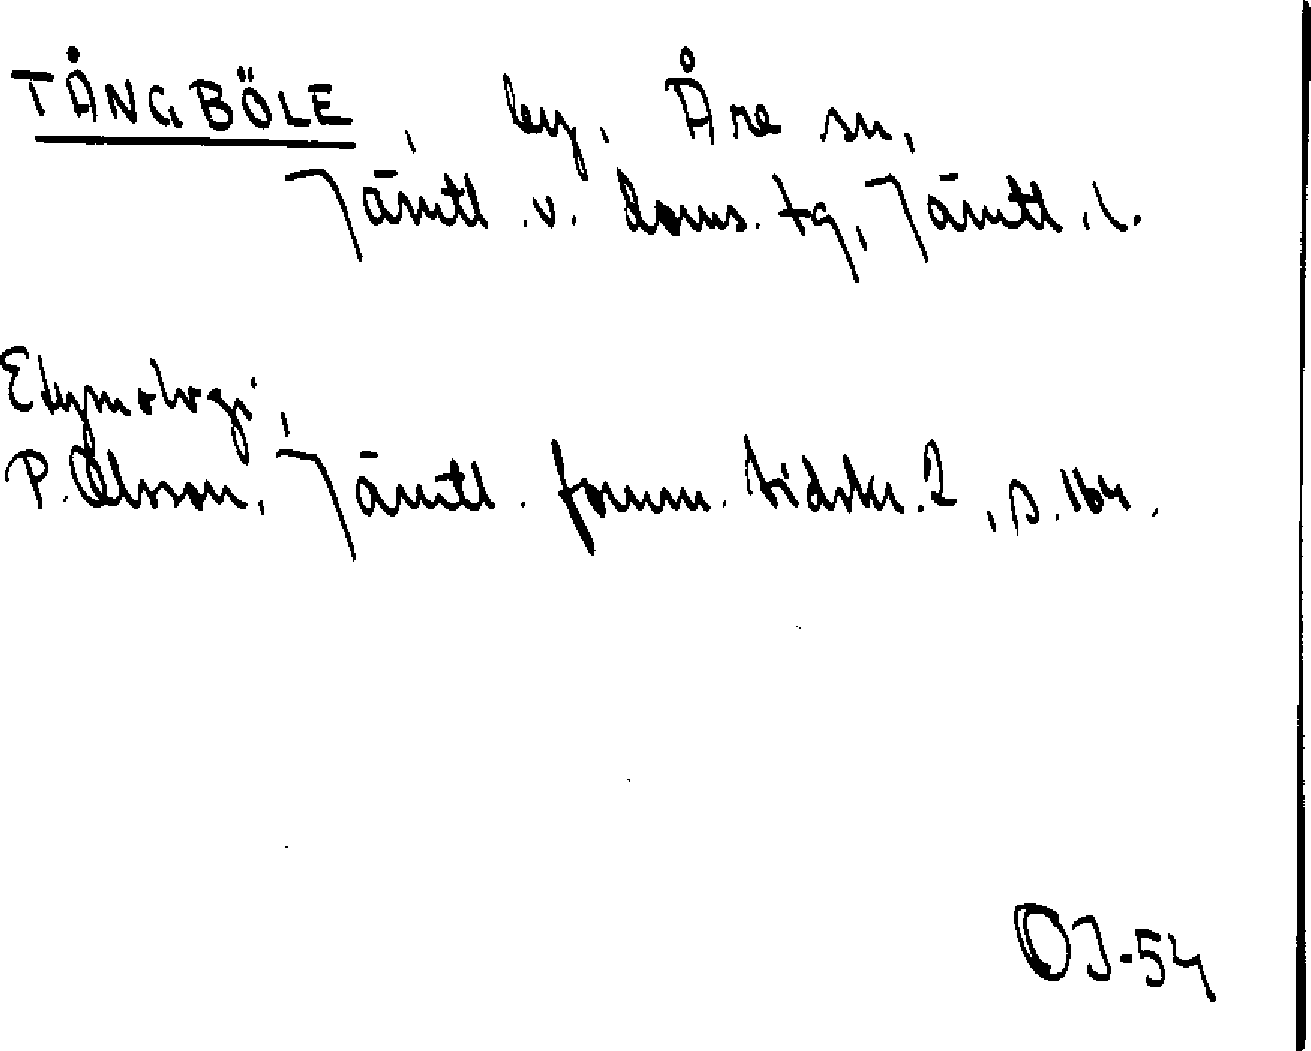 TÅNGBÖLE, by, Åre sn,
Jämtl. v. doms. tg, Jämtl. l.
Etymologi,
P. Olsson, Jämtl. fornm. tidskr. 2, s. 164.
OJ-54